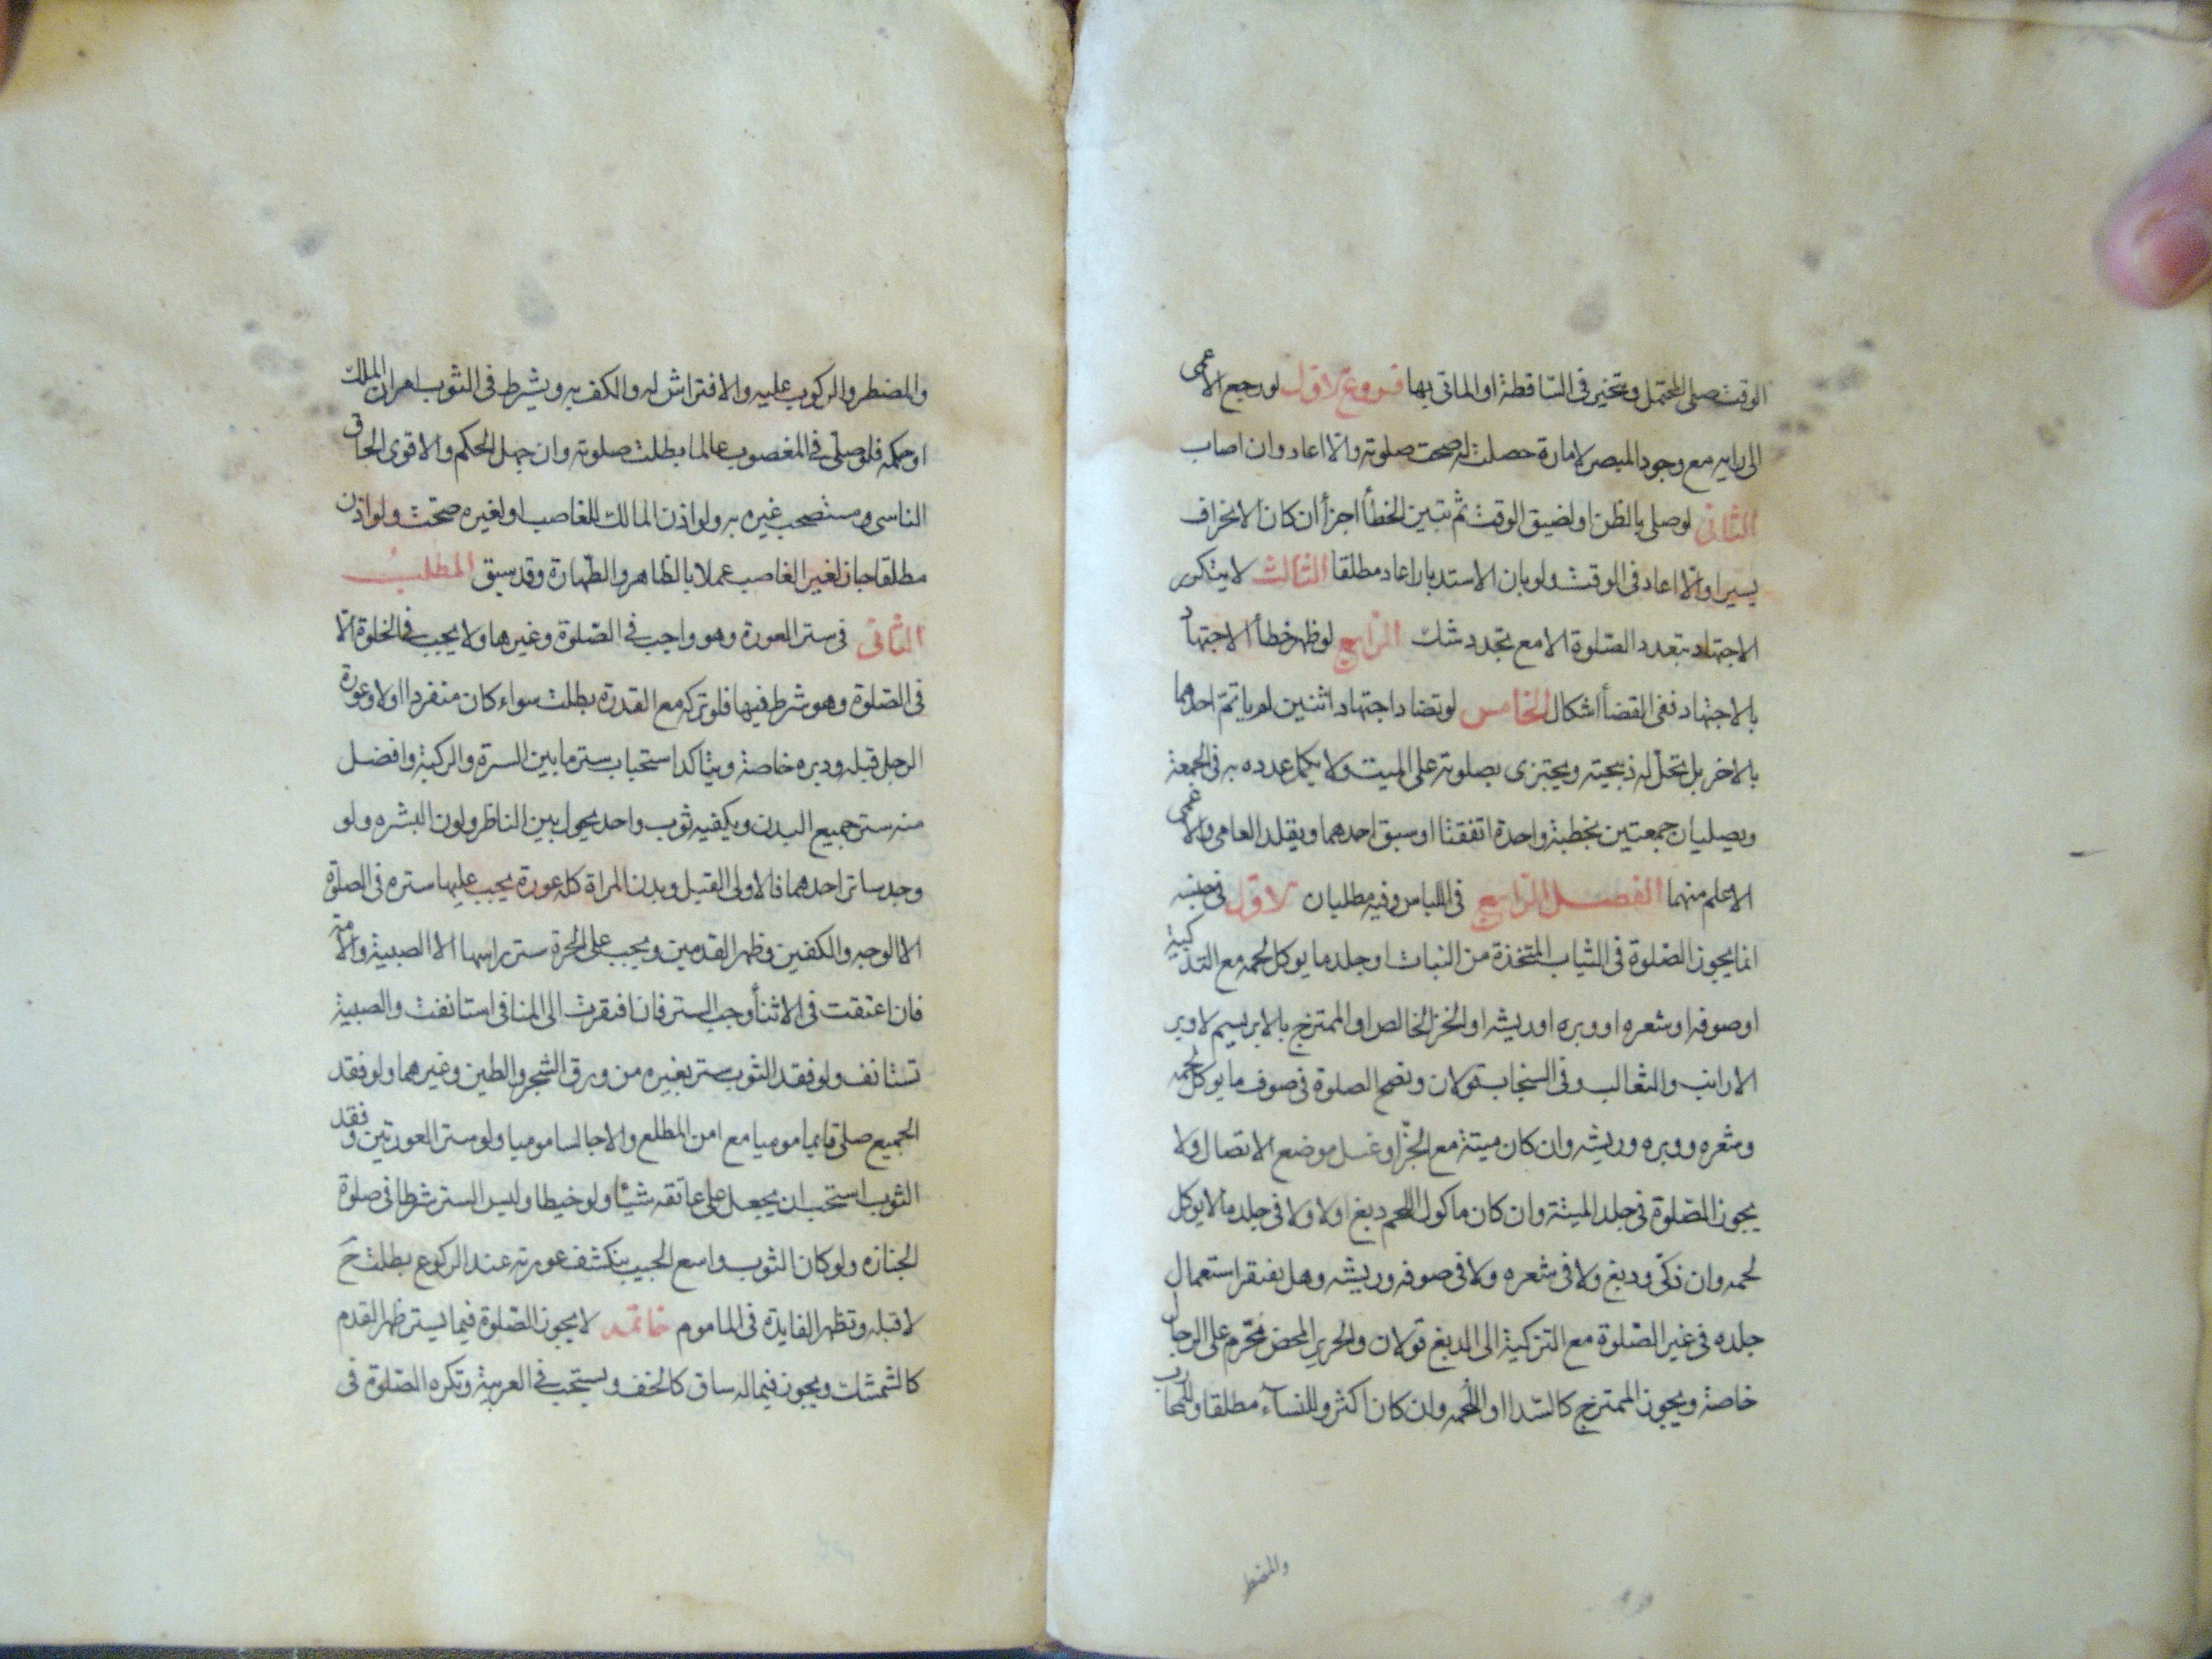 الوقت صلى المحتمل ويتخير فى الساقطة او الماتى بها فروع الاول لو رجع الاعمى
الى رايه مع وجود المبصر لامارة حصلت له صحت صلوته والا اعاد وان اصاب
الثانى لو صلى بالظن او لضيق الوقت ثم تبين الخطأ اجزأ ان كان الانحراف
يسيرا والا اعاد فى الوقت ولو بان الاستدبار اعاد مطلقا الثالث لا يتكرر
الاجتهاد بتعدد الصلوة الا مع تجدد شك الرابع لو ظهر خطأ الاجتهاد
بالاجتهاد ففى القضأ اشكال الخامس لو تضاد اجتهاد اثنين لم ياتم احدهما
بالاخر بل تحل له ذبيحته ويجتزى بصلوته على الميت ولا يكمل عدده به فى الجمعة
ويصليان جمعتين بخطبة واحدة اتفقتا او سبق احدهما ويقلد العامى والاعمى
الاعلم منهما الفصل الرابع فى اللباس وفيه مطلبان الاول فى جنسه
انما يجوز الصلوة فى الثياب المتخذة من النبات او جلد ما يوكل لحمه مع التذكية
او صوفه او شعره او وبره او ريشه او الخز الخالص او الممتزج بالابريسم لا وبر
الارانب والثعالب وفى السنجاب قولان وتصح الصلوة فى صوف ما يوكل لحمه
وشعره ووبره وريشه وان كان ميتة مع الجز او غسل موضع الاتصال ولا
يجوز الصلوة فى جلد الميتة وان كان ماكول اللحم دبغ او لا ولا فى جلد ما لا يوكل
لحمه وان ذكى ودبغ ولا فى شعره ولا فى صوفه وريشه وهل يفتقر استعمال
جلده فى غير الصلوة مع التزكية الى الدبغ قولان والحرير المحض محرم على الرجال
خاصة ويجوز الممتزج كالسدا او اللحمه وان كان اكثر وللنسآء مطلقا وللمحارب
والمضطر
والمضطر والركوب عليه والافتراش له والكف به ويشرط فى الثوب امران الملك
او حكمه فلو صلى فى المغصوب عالما بطلت صلوته وان جهل الحكم والاقوى الحاق
الناسى ومستصحب غيره به ولو اذن المالك للغاصب او لغيره صحت ولو اذن
مطلقا جاز لغير الغاصب عملا بالظاهر والطهارة وقد سبق المطلب
الثانى فى ستر العورة وهو واجب فى الصلوة وغيرها ولا يجب فى الخلوة الا
فى الصلوة وهو شرط فيها فلو تركه مع القدرة بطلت سواء كان منفردا او لا وعورة
الرجل قبله ودبره خاصة ويتاكد استحباب ستر ما بين السرة والركبة وافضل
منه ستر جميع البدن ويكفيه ثوب واحد يحول بين الناظر ولون البشره ولو
وجد ساتر احدهما فالاولى القبل وبدن المراة كله عورة يجب عليها ستره فى الصلوة
الا الوجه والكفين وظهر القدمين ويجب على الحرة ستر راسها الا الصبية والامة
فان اعتقت فى الاثنأ وجب الستر فان افتقرت الى المنافى استانفت والصبية
تستانف ولو فقد الثوب ستر بغيره من ورق الشجر والطين وغيرهما ولو فقد
الجميع صلى قايما موميا مع امن المطلع والا جالسا موميا ولو ستر العورتين وفقد
الثوب استحب ان يجعل على عاتقه شيئا ولو خيطا وليس الستر شرطا فى صلوة
الجنازه ولو كان الثوب واسع الجيب ينكشف عورته عند الركوع بطلت ح
لا قبله وتظهر الفايده فى الماموم خاتمه لا يجوز الصلوة فيما يستر ظهر القدم
كالشمشك ويجوز فيما له ساق كالخف ويستحب فى العربية وتكره الصلوة فى